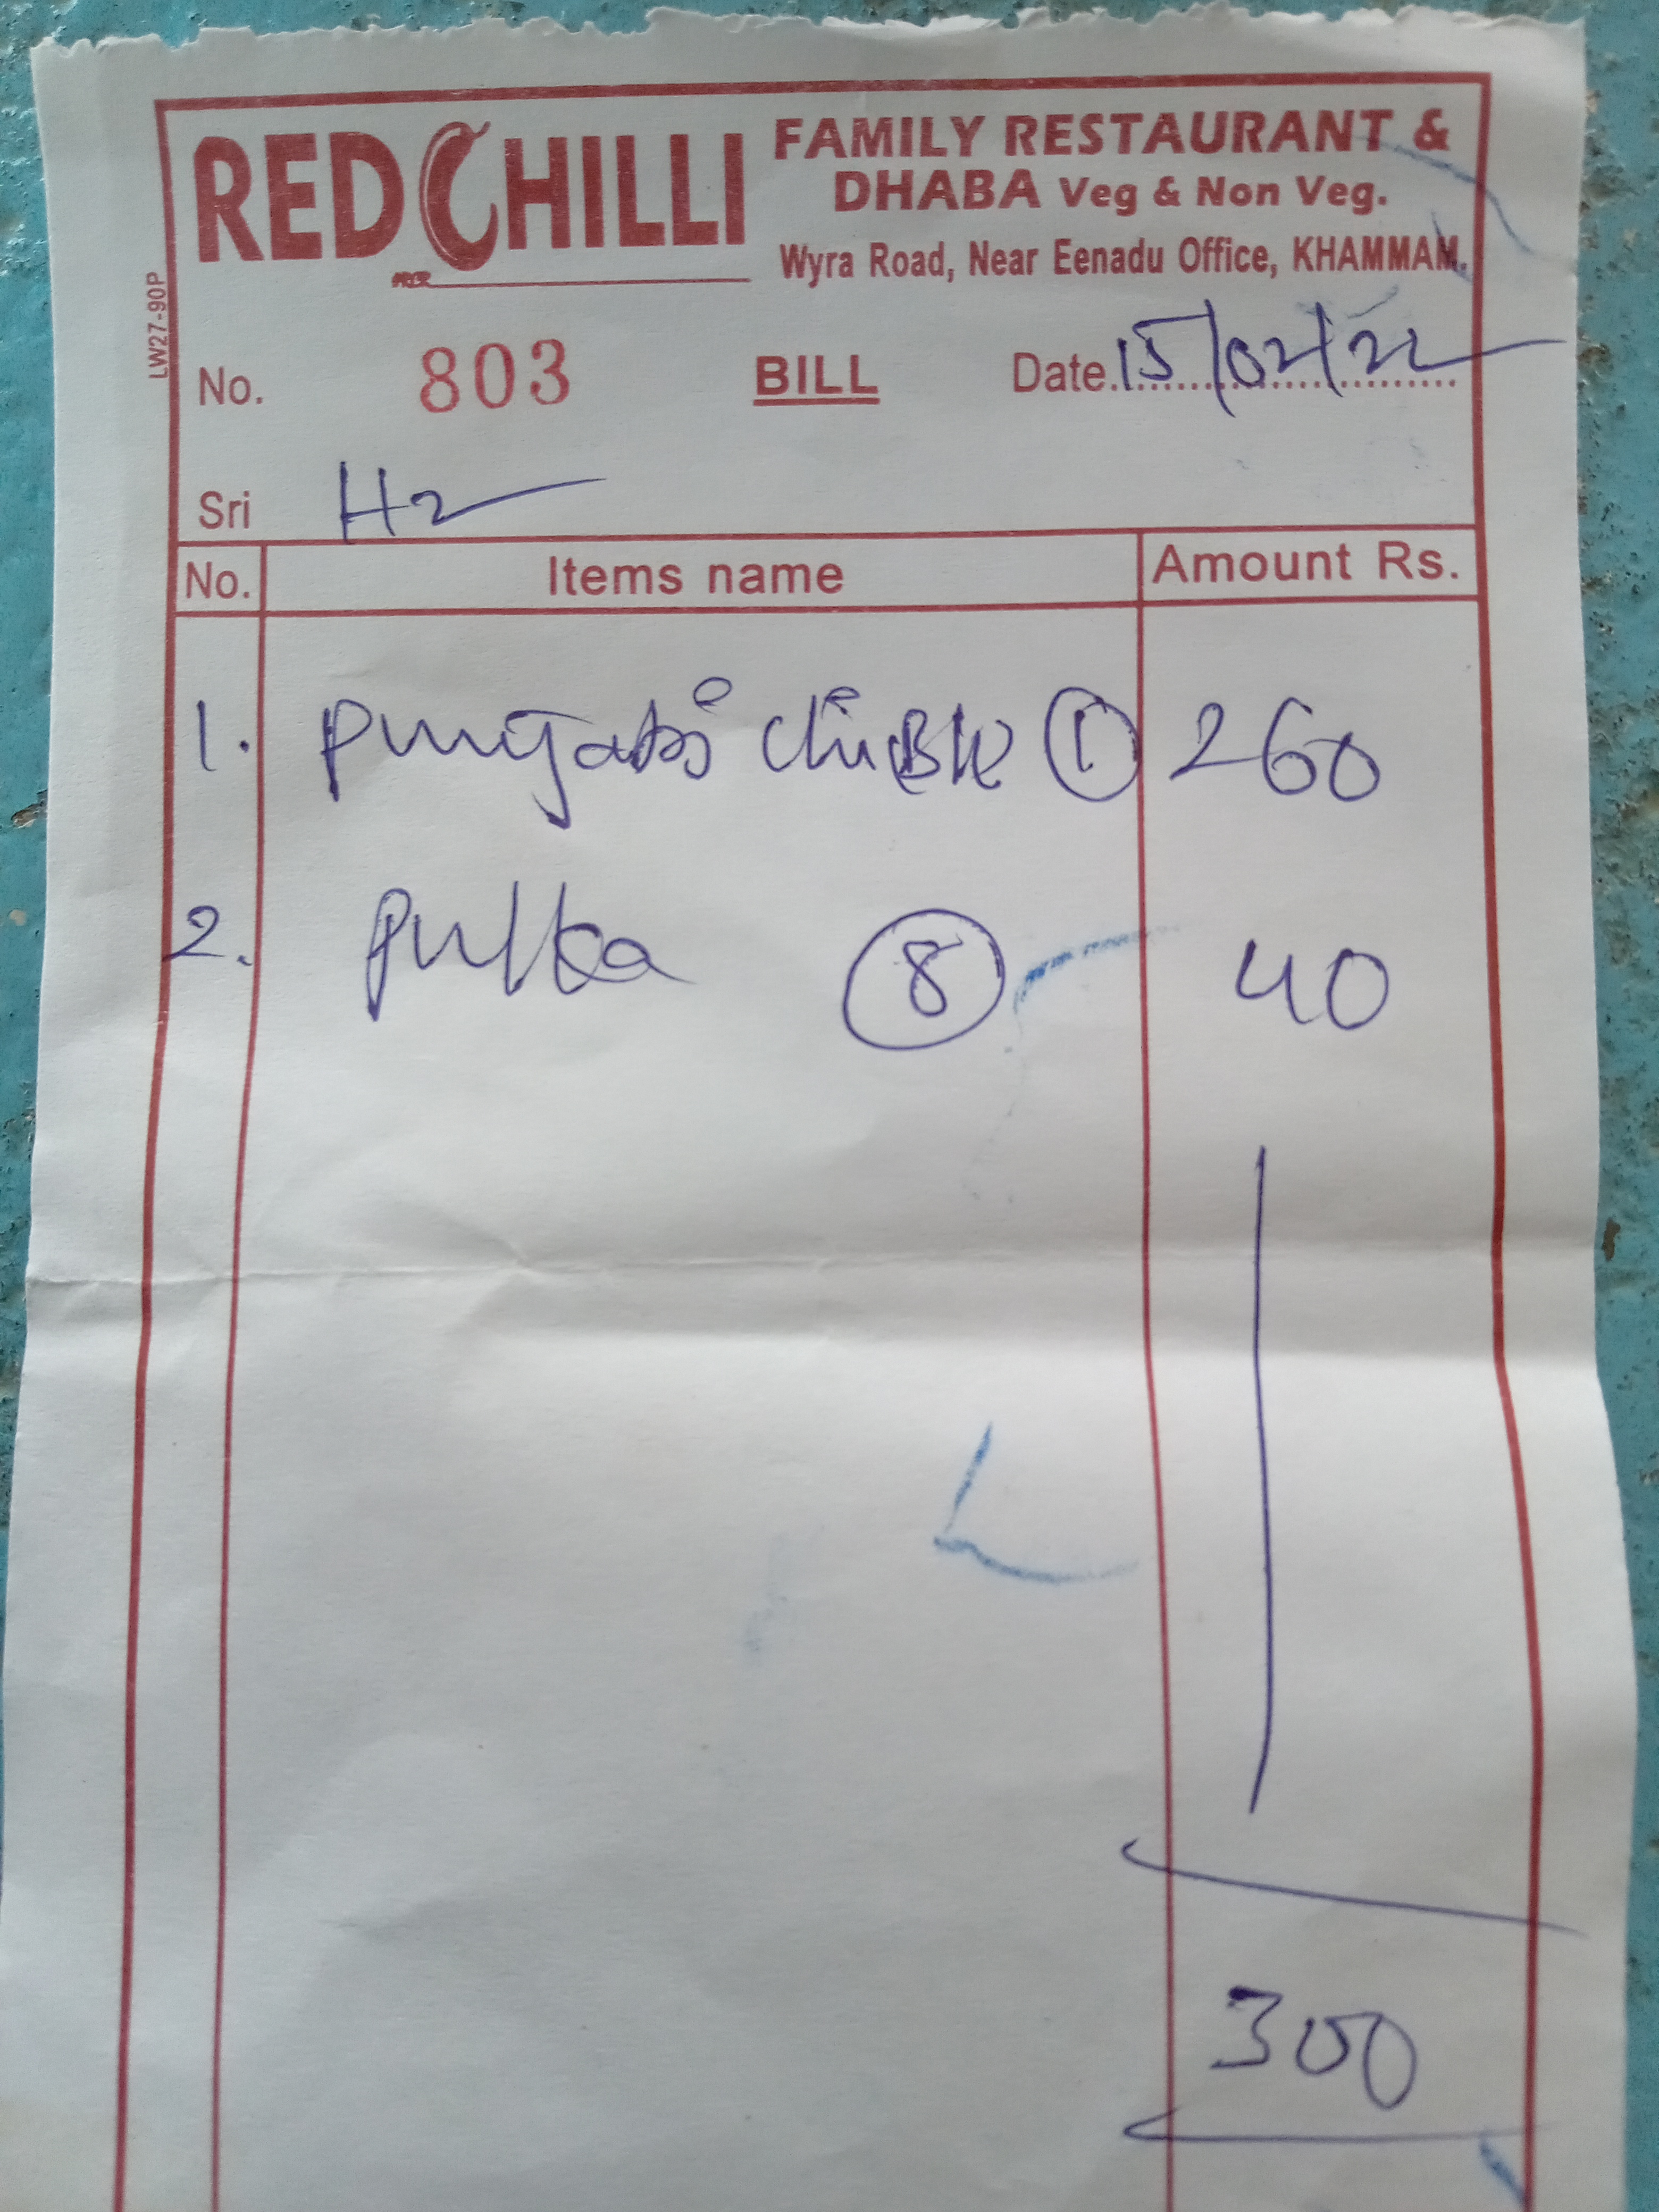 RED CHILLI
FAMILY RESTAURANT &
DHABA Veg & Non Veg.
Wyra Road, Near Eenadu Office, KHAMMAM.
LW27-90P
No. 803 BILL Date. 15/02/22
Sri H2
No. Items name Amount Rs.
1. Punjabi 1 260
2. Pulka 8 40
300